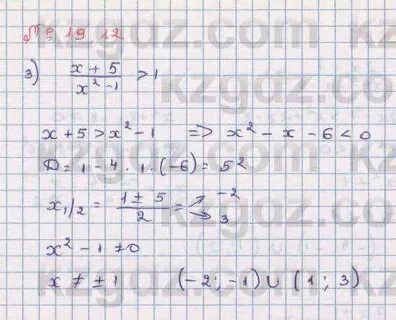 № 19.12
3) (x + 5)/(x² - 1) > 1
x + 5 > x² - 1 => x² - x - 6 < 0
D = 1 - 4 · 1 · (-6) = 5²
x₁/₂ = (1 ± 5)/2 = -2
3
x² - 1 ≠ 0
x ≠ ± 1 (-2; -1) ∪ (1; 3)
kzgdz.com